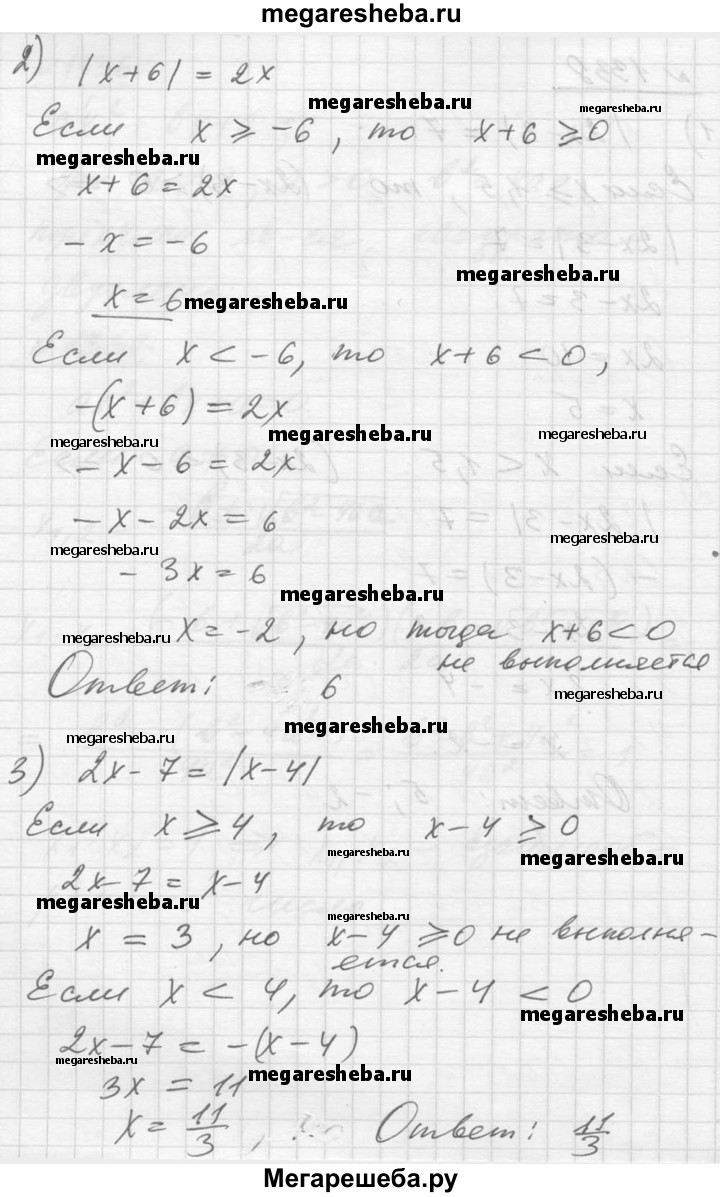 megaresheba.ru
2) |x+6| = 2x
megaresheba.ru
Если x ⩾ -6, то x+6 ⩾ 0
megaresheba.ru
megaresheba.ru
x+6 = 2x
-x = -6
megaresheba.ru
x = 6
megaresheba.ru
Если x < -6, то x+6 < 0,
-(x+6) = 2x
megaresheba.ru
megaresheba.ru
megaresheba.ru
-x-6 = 2x
-x-2x = 6
megaresheba.ru
-3x = 6
megaresheba.ru
megaresheba.ru
x = -2, но тогда x+6<0
не выполняется
Ответ: 6
megaresheba.ru
megaresheba.ru
megaresheba.ru
3) 2x-7 = |x-4|
Если x ⩾ 4, то x-4 ⩾ 0
megaresheba.ru
megaresheba.ru
2x-7 = x-4
megaresheba.ru
megaresheba.ru
x = 3, но x-4 ⩾0 не выполня-
ется.
Если x < 4, то x-4 < 0
megaresheba.ru
2x-7 = -(x-4)
megaresheba.ru
megaresheba.ru
3x = 11
x = 11/3, Ответ: 11/3
Мегарешеба.ру